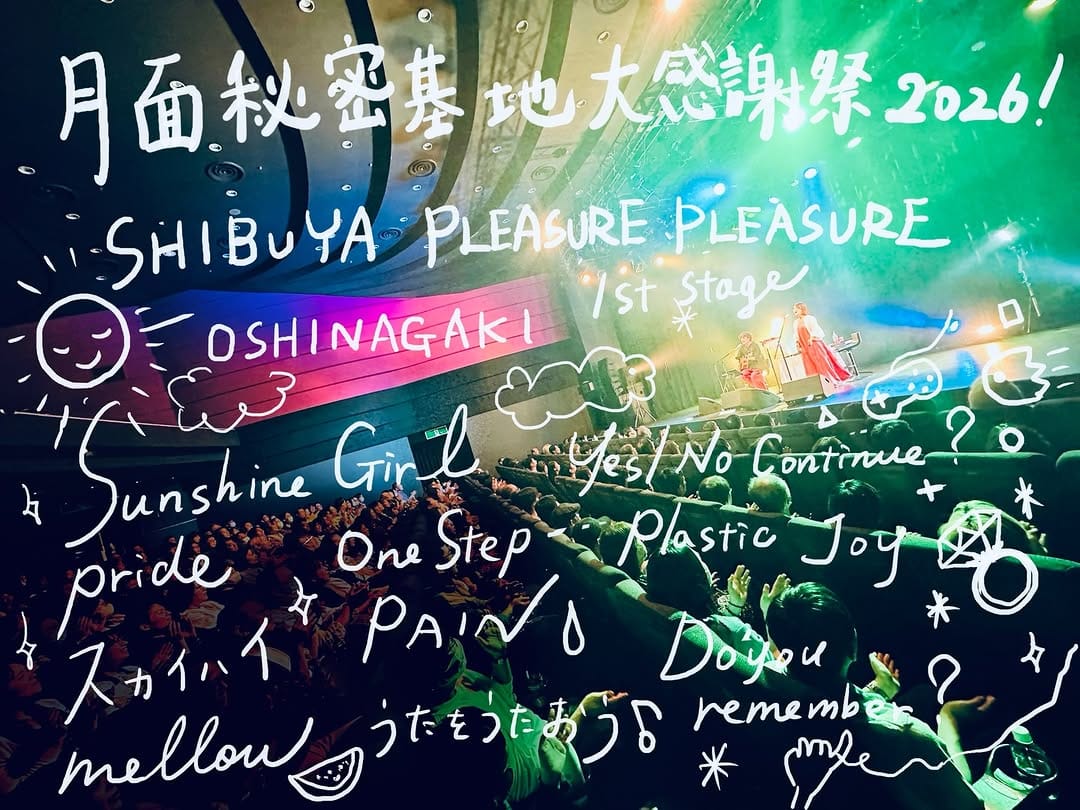 月面秘密基地大感謝祭2026!
SHIBUYA PLEASURE PLEASURE
1st stage
OSHINAGAKI
Sunshine Girl Yes/No Continue?
pride One Step Plastic Joy
スカイハイ PAIN Do you remember?
mellow うたをうたおう♪